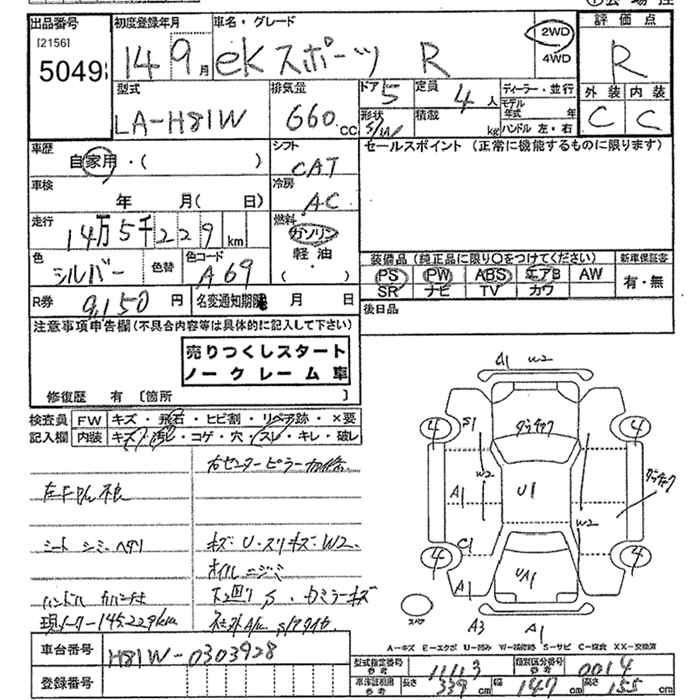 出品番号 初度登録年月 車名・グレード 評価点
[2156]
5049 14 9月 eKスポーツ R 2WD 4WD R
型式 排気量 ドア 5 定員 4人 ディーラー・並行 外装 内装
LA-H81W 660cc 形状 S/W 積載 kg モデル年式 年 ハンドル 左・右 C C
車歴 自家用・( ) シフト CAT セールスポイント (正常に機能するものに限ります)
車検 年 月( 日) 冷房 AC
走行 14万5千229km 燃料 ガソリン 軽油・( )
色 シルバー 色替 色コード A69 装備品(純正品に限り○をつけてください) 新車保証書
PS PW ABS エアB AW 有・無
SR ナビ TV カワ
R券 9,150円 名変通知期限 月 日 後日品
注意事項申告欄(不具合内容等は具体的に記入して下さい)
売りつくしスタート
ノークレーム車
修復歴 有 [箇所 ]
検査員 FW キズ・飛石・ヒビ割・リペア跡・×要
記入欄 内装 キズ・汚レ・コゲ・穴・スレ・キレ・破レ
右センターピラー
シート シミ・ヘタリ
キズ U・スリキズ・W2
オイルニジミ
ハンドル
下回りS
現メーター145229km
車台番号 H81W-0303928
登録番号
A1 W2
4 S1 4
W2
A1 U1
W2
C1
4 4
A1 UA1
スペア A3 A1
A=キズ E=エクボ U=凹み W=補修跡 S=サビ C=腐食 XX=交換済
型式指定番号 参考 11113 類別区分番号 参考 0014
車検証期間 参考 長さ 339cm 幅 147cm 高さ 155cm